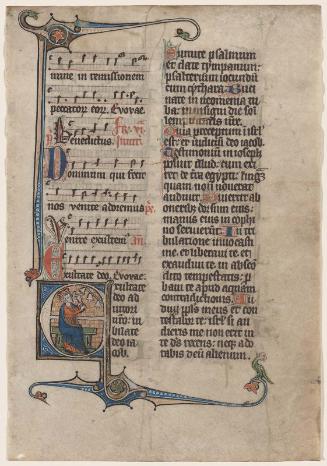 nime in remissionem
peccatorum eorum. Evovae.
Benedictus
Dominum qui fecit
nos venite adoremus
Venite exultem
Exultate deo. Evovae.
Exultate
deo ad
iutori
nostro: iu
bilate
deo ia
cob.
Sumite psalmum
et date tympanum:
psalterium iocundum
cum cythara. Buci
nate in neomenia tu
ba: in insigni die sol
lempnitatis vestre.
Quia preceptum in israel
est: et iudicium deo iacob.
Testimonium in ioseph
posuit illud: cum exi
ret de terra egypti: linguam
quam non noverat
audivit. Divertit ab
oneribus dorsum eius:
manus eius in cophi
no servierunt. In tri
bulatione invocasti
me et liberavi te: et
exaudivi te in abscon
dito tempestatis: pro
bavi te apud aquam
contradictionis. Au
di populus meus et con
testabor te: israel si au
dieris me non erit in
te deus recens: nec ado
rabis deum alienum.